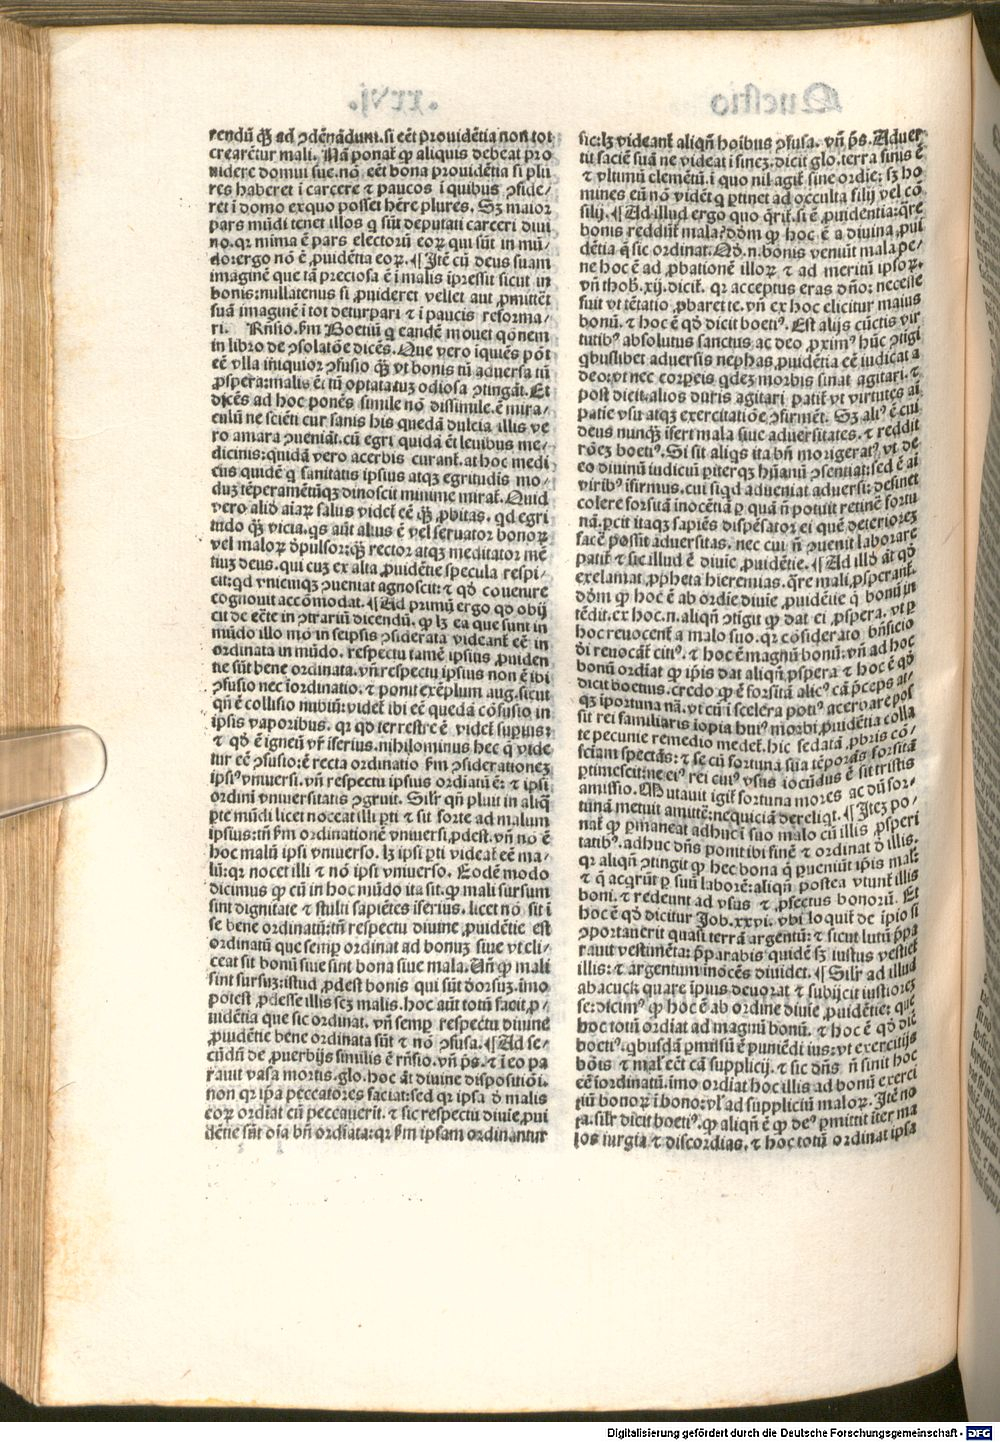 rendũ q̃ʒ ad ꝯdẽnãdum. si eẽt prouidẽtia non tot
crearẽtur mali. Nã ponat̃ ꝙ aliquis debeat pro
uidere domui sue. nõ eẽt bona prouidẽtia si plu
res haberet ĩ carcere ⁊ paucos ĩ quibus ꝯfide/
ret ĩ domo ex quo posset hẽre plures. Sʒ maior
pars mũdi tenet illos q sũt deputati carceri diui
no. qr mima ẽ pars electorũ eoꝝ qui sũt in mũ/
do. ergo nõ ẽ ꝓuidẽtia eoꝝ. ¶ Itẽ cũ deus suam
imaginẽ que tã preciosa ẽ ĩ malis ĩpressit sicut in
bonis: nullatenus si ꝓuideret vellet aut ꝑmittẽt
suã imaginẽ ĩ tot deturpari ⁊ ĩ paucis reforma/
ri. Rñsio. ẜm Boetiũ q eandẽ mouet qõnem
in libro de ꝯsolatõe dicẽs. Que vero iquiẽs põt
eẽ vlla iñiquior ꝯfusio q̃ʒ vt bonis tũ aduersa tũ
ꝓspera: malis ẽt tũ optata tuʒ odiosa ꝯtingãt. Et
dicẽs ad hoc ponẽs simile nõ dissimile. ẽ mira/
culũ ne sciẽti cur sanis his quedã dulcia illis ve
ro amara ꝯueniãt. cũ egri quidã ẽt leuibus me/
dicinis: quidã vero acerbis curant̃. at hoc medi
cus quidẽ q sanitatis ipsius atqʒ egritudis mo/
duʒ tẽperamẽtũqʒ dinoscit minime mirat̃. Quid
vero aliđ aiaꝝ salus videt̃ eẽ q̃ʒ ꝓbitas. qd egri
tudo q̃ʒ vicia. qs aũt alius ẽ vel seruator bonoꝝ
vel maloꝝ đpulsor: q̃ʒ rector atqʒ meditator mẽ
tiuʒ deus. qui cuʒ ex alta ꝓuidẽtie specula respi/
cit: qd vnicuiqʒ ꝯueniat agnoscit: ⁊ qđ couenire
cognouit accõmodat. ¶ Ad primũ ergo qđ obij
cit de eẽte in ꝯtrariũ dicendũ. ꝙ lʒ ea que sunt in
mũdo illo mõ in seipsis ꝯsiderata videant̃ eẽ in
ordinata in mũdo. respectu tamẽ ipsius ꝓuiden
tie sũt bene ordinata. vñ respectu ipsius non ẽ ibi
ꝯfusio nec ĩordinatio. ⁊ ponit exẽplum aug. sicut
qñ ẽ collisio nubiũ: videt̃ ibi eẽ quedã cõfusio in
ipsis vaporibus. qr qđ terrestre ẽ videt̃ supius:
⁊ qđ ẽ igneũ vr̃ iferius. nihilominus hec q̃ vide
tur eẽ ꝯfusio: ẽ recta ordinatio ẜm ꝯsiderationeʒ
ipsiꝰ vniuersi. vñ respectu ipsius ordiatũ ẽ: ⁊ ipsi
ordini vniuersitatis ꝯgruit. Silr̃ qñ pluit in aliq̃
ꝑte mũdi licet noceat illi ꝑti ⁊ sit forte ad malum
ipsius: tñ ẜm ordinationẽ vniuersi ꝓdest. vñ nõ ẽ
hoc malũ ipsi vniuerso. lʒ ipsi ꝑti videat̃ eẽ ma/
lũ: qr nocet illi ⁊ nõ ipsi vniuerso. Eodẽ modo
dicimus ꝙ cũ in hoc mũdo ita sit. ꝙ mali sursum
sint dignitate ⁊ stulti sapiẽtes iferius. licet nõ sit ĩ
se bene ordinatũ: tñ respectu diuine ꝓuidẽtie est
ordinatũ que semꝑ ordinat ad bonuʒ siue vt eli/
ceat sit bonũ siue sint bona siue mala. Uñ ꝙ mali
sint sursuʒ: istud ꝓdest bonis qui sũt đorsuʒ. imo
potest ꝓdesse illis sez malis. hoc aũt totũ facit ꝓ/
uidẽtia que sic ordinat. vñ semꝑ respectu diuine
ꝓuidẽtie bene ordinata sũt ⁊ nõ ꝯfusa. ¶ Ad se/
cũdũ de ꝓuerbijs similis ẽ rñsio. vñ p̃s. ⁊ ĩ eo pa
rauit vasa mortis. glo. hoc ãt diuine dispositiõi.
non qr ip̃a peccatores faciat: sed qr ipsa đ malis
eoꝝ ordiat cũ peccauerit. ⁊ sic respectu diuie ꝓui
dẽtie sũt oĩa bñ ordiata: qr ẜm ipsam ordinantur
sic: lʒ videant̃ aliqñ hoĩbus ꝯfusa. vñ p̃s. Auer
tũ faciẽ suã ne videat ĩ fineʒ. dicit glo. terra finis ẽ
⁊ vltimũ elemẽtũ. ĩ quo nil agit̃ sine ordie: sʒ ho
mines eũ nõ vidẽt q ꝑtinet ad occulta filij vel cõ
filij. ¶ Ad illud ergo quo q̃rit̃. si ẽ ꝓuidentia: q̃re
bonis reddũt̃ mala? dõm ꝙ hoc ẽ a diuina ꝓui
dẽtia q̃ sic ordinat. Qđ. n. bonis veniũt mala pe/
ne hoc ẽ ad ꝓbationẽ illoꝝ ⁊ ad meritũ ipsoꝝ.
vñ thob. xij. dicit̃. qr acceptus eras dño: necesse
fuit vt tẽtatio ꝓbaret te. vñ ex hoc elicitur maius
bonũ. ⁊ hoc ẽ qđ dicit boetiꝰ. Est alijs cũctis vir
tutibꝰ absolutus sanctus ac deo ꝓximꝰ hũc ꝯtigi
q̃buslibet aduersis nephas ꝓuidẽtia eẽ iudicat a
deo: vt nec corpeis qdeʒ morbis sinat agitari. ⁊
post dicit. alios duris agitari patit̃ vt virtutes aĩ
patie vsu atqʒ exercitatiõe ꝯfirmẽt. Sʒ aliꝰ ẽ cui
deus nunq̃ʒ ĩfert mala siue aduersitates. ⁊ reddit
rõeʒ boetiꝰ. Si sit aliqs ita bñ morigeratꝰ vt de
eo diuinũ iudiciũ ꝑiterqʒ hũanũ ꝯsentiat: sed ẽ aĩ
viribꝰ ĩfirmus. cui siqd adueniat aduersi: desinet
colere forsitã inocẽtiã ꝑ quã ñ potuit retinẽ fortu
nã. ꝑcit itaqʒ sapiẽs dispẽsator ei quẽ deterioreʒ
facẽ possit aduersitas. nec cui ñ ꝯuenit laborare
patit̃ ⁊ sic illud ẽ diuie ꝓuidẽtie. ¶ Ad illđ ãt qđ
exclamat ꝓpheta hieremias. q̃re mali ꝓsperant̃.
dõm ꝙ hoc ẽ ab ordie diuie ꝓuidẽtie q̃ bonũ in
tẽdit. ex hoc. n. aliqñ ꝯtigit ꝙ dat ei ꝓspera. vt ꝑ
hoc reuocent̃ a malo suo. qr considerato bñficio
đi reuocãt̃ citiꝰ. ⁊ hoc ẽ magnũ bonũ: vñ ad hoc
bonũ ordĩat ꝙ ip̃is dat aliqñ ꝓspera ⁊ hoc ẽ qđ
dicit boetius. credo ꝙ ẽ forsitã alicꝰ cã p̃ceps at/
qʒ iportuna nã. vt cũ ĩ scelera potiꝰ aceruare pos
sit rei familiaris iopia huiꝰ morbi ꝓuidẽtia colla
te pecunie remedio medet̃. hic sedatã ꝓbris cõ/
sciam spectãs: ⁊ se cũ fortuna sua tẽporãs forsitã
ꝑtimescit: ne eiꝰ rei cuiꝰ vsus iocũdus ẽ sit tristis
amissio. Mutauit igit̃ fortuna mores ac dũ for/
tunã metuit amittẽ: nequiciã dereliqt. ¶ Iteʒ po/
nat̃ ꝙ ꝑmaneat adhuc ĩ suo malo cũ illis ꝓsperi
tatibꝰ. adhuc dñs ponit ibi finẽ ⁊ ordinat đ illis.
qr aliqñ ꝯtingit ꝙ hec bona q̃ ꝑueniũt ip̃is malʒ
⁊ q̃ acq̃rũt ꝑ suũ laborẽ: aliqñ postea vtunt̃ illis
boni. ⁊ redeunt ad vsus ⁊ ꝓfectus bonorũ. Et
hoc ẽ qđ dicitur Job. xxvi. vbi loquit̃ de ipio si
ꝯportauerit quasi terrã argentũ: ⁊ sicut lutũ p̃pa
rauit vestimẽta: p̃parabis quidẽ sʒ iustus vestiet̃
illis: ⁊ argentum inocẽs diuidet. ¶ Silr̃ ad illud
abacuck quare ĩpius deuorat ⁊ subijcit iustioreʒ
se: dicimꝰ ꝙ hoc ẽ ab ordine diuie ꝓuidẽtie: que
hoc totũ ordiat ad magnũ bonũ. ⁊ hoc ẽ qđ dic̃
boetiꝰ. q̃busdã ꝑmisũ ẽ puniẽdi ius: vt exercitijs
bõis ⁊ mal̃ eẽt cã supplicij. ⁊ sic dñs ñ sinit hoc
eẽ iordinatũ. imo ordiat hoc illis ad bonũ exerci
tiũ bonoꝝ ĩ bono: vl̃ ad suppliciũ maloꝝ. Itẽ no
ta. silr̃ dicit boetiꝰ. ꝙ aliqñ ẽ ꝙ deꝰ ꝑmittit iter ma
los iurgia ⁊ discordias. ⁊ hoc totũ ordinat ipsa
Digitalisierung gefördert durch die Deutsche Forschungsgemeinschaft - DFG